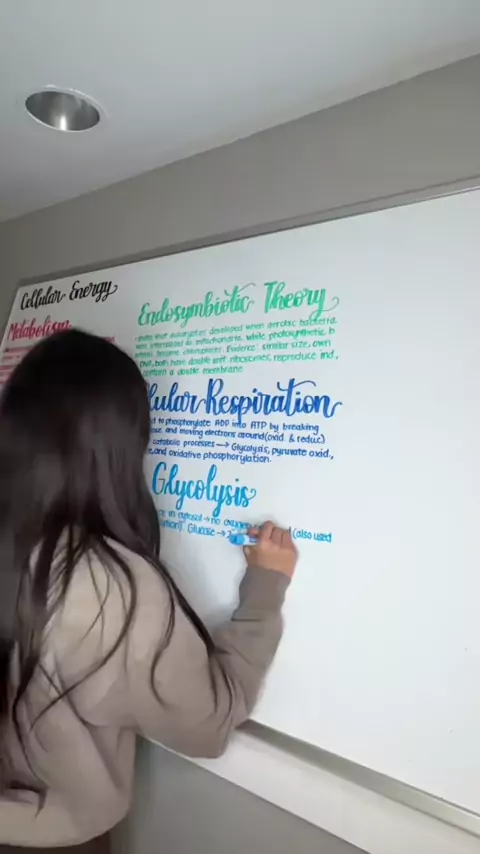 Cellular Energy
Metabolism
Endosymbiotic Theory
states that eukaryotes developed when aerobic bacteria
were internalized as mitochondria, while photosynthetic b
became chloroplasts. Evidence: similar size, own
DNA, both have double unit ribosomes, reproduce ind.,
contain a double membrane
lular Respiration
d to phosphorylate ADP into ATP by breaking
ose and moving electrons around (oxid. & reduc.)
catabolic processes → Glycolysis, pyruvate oxid.,
e, and oxidative phosphorylation.
Glycolysis
in cytosol → no oxygen (also used
Glucose → 2